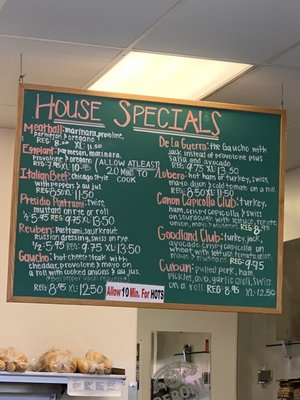 HOUSE SPECIALS
Meatball: marinara, provolone,
parmesan & oregano
REG: 8.50 XL: 11.50
Eggplant: parmesan, marinara,
provolone & oregano
REG: 7.95 XL: 10.95
(ALLOW ATLEAST
20 MINS TO
COOK
Italian Beef: Chicago Style
with peppers & au jus
8.50 XL: 11.50
Presidio Pastrami, swiss,
mustard on rye or roll
1/2 5.95 REG 9.75 XL 13.50
Reuben: pastrami, sourkraut
Russian dressing, swiss on rye
1/2 5.95 REG 9.75 XL 13.50
Gaucho: hot cheese steak with
cheddar, provolone & mayo
on a roll with cooked onions & au jus
REG: 8.95 XL: 12.50
Allow 10 Min. For HOTS
De La Guerra: the Gaucho with
jack instead of provolone plus
salsa and avocado
REG 9.75 XL 13.50
Lobero: hot ham or turkey, swiss,
mayo, dijon & cold tomato on a roll
REG 8.50 XL 12.50
Canon Capicolla Club: turkey,
ham, crispy capicolla & swiss
on sourdough with lettuce, tomato
onion, mayo & mustard REG 8.95
Goodland Club: turkey, jack,
avocado, crispy capicolla on
wheat with lettuce, tomato, onion,
mayo & mustard REG 9.75
Cuban: pulled pork, ham
pickles, avo, garlic aioli, swiss
on a roll REG 8.95 XL 12.50